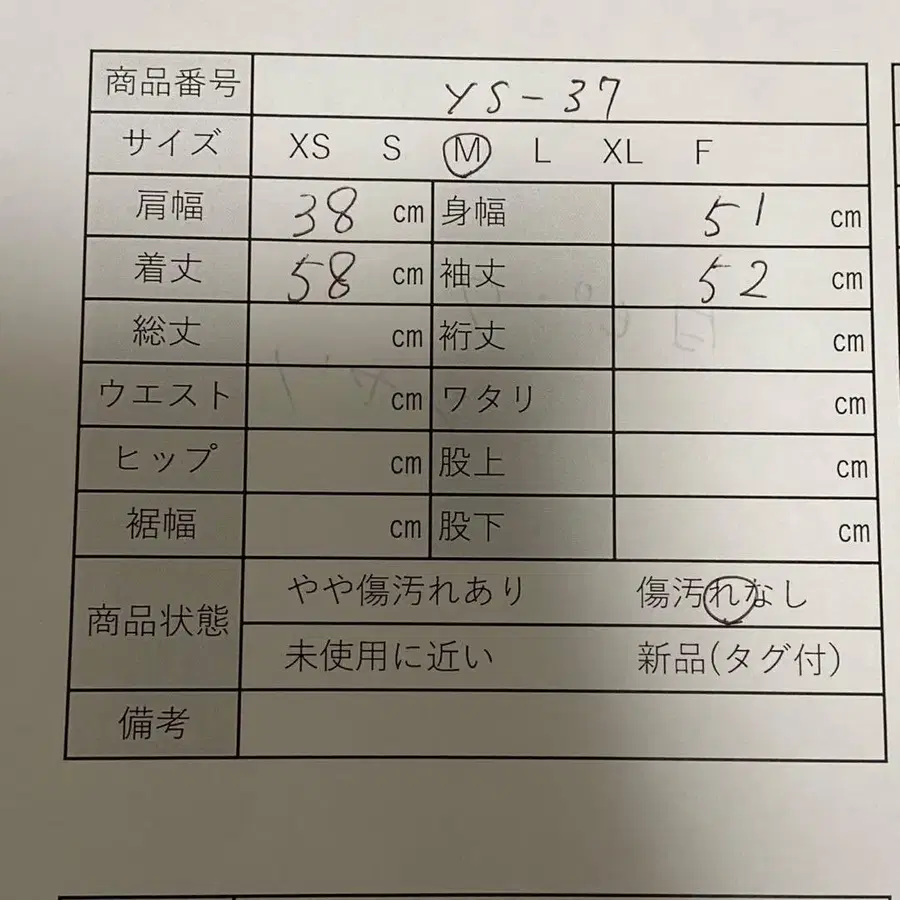 商品番号 YS-37
サイズ XS S M L XL F
肩幅 38 cm 身幅 51 cm
着丈 58 cm 袖丈 52 cm
総丈 cm 裄丈 cm
ウエスト cm ワタリ cm
ヒップ cm 股上 cm
裾幅 cm 股下 cm
商品状態 やや傷汚れあり 傷汚れなし
未使用に近い 新品(タグ付)
備考